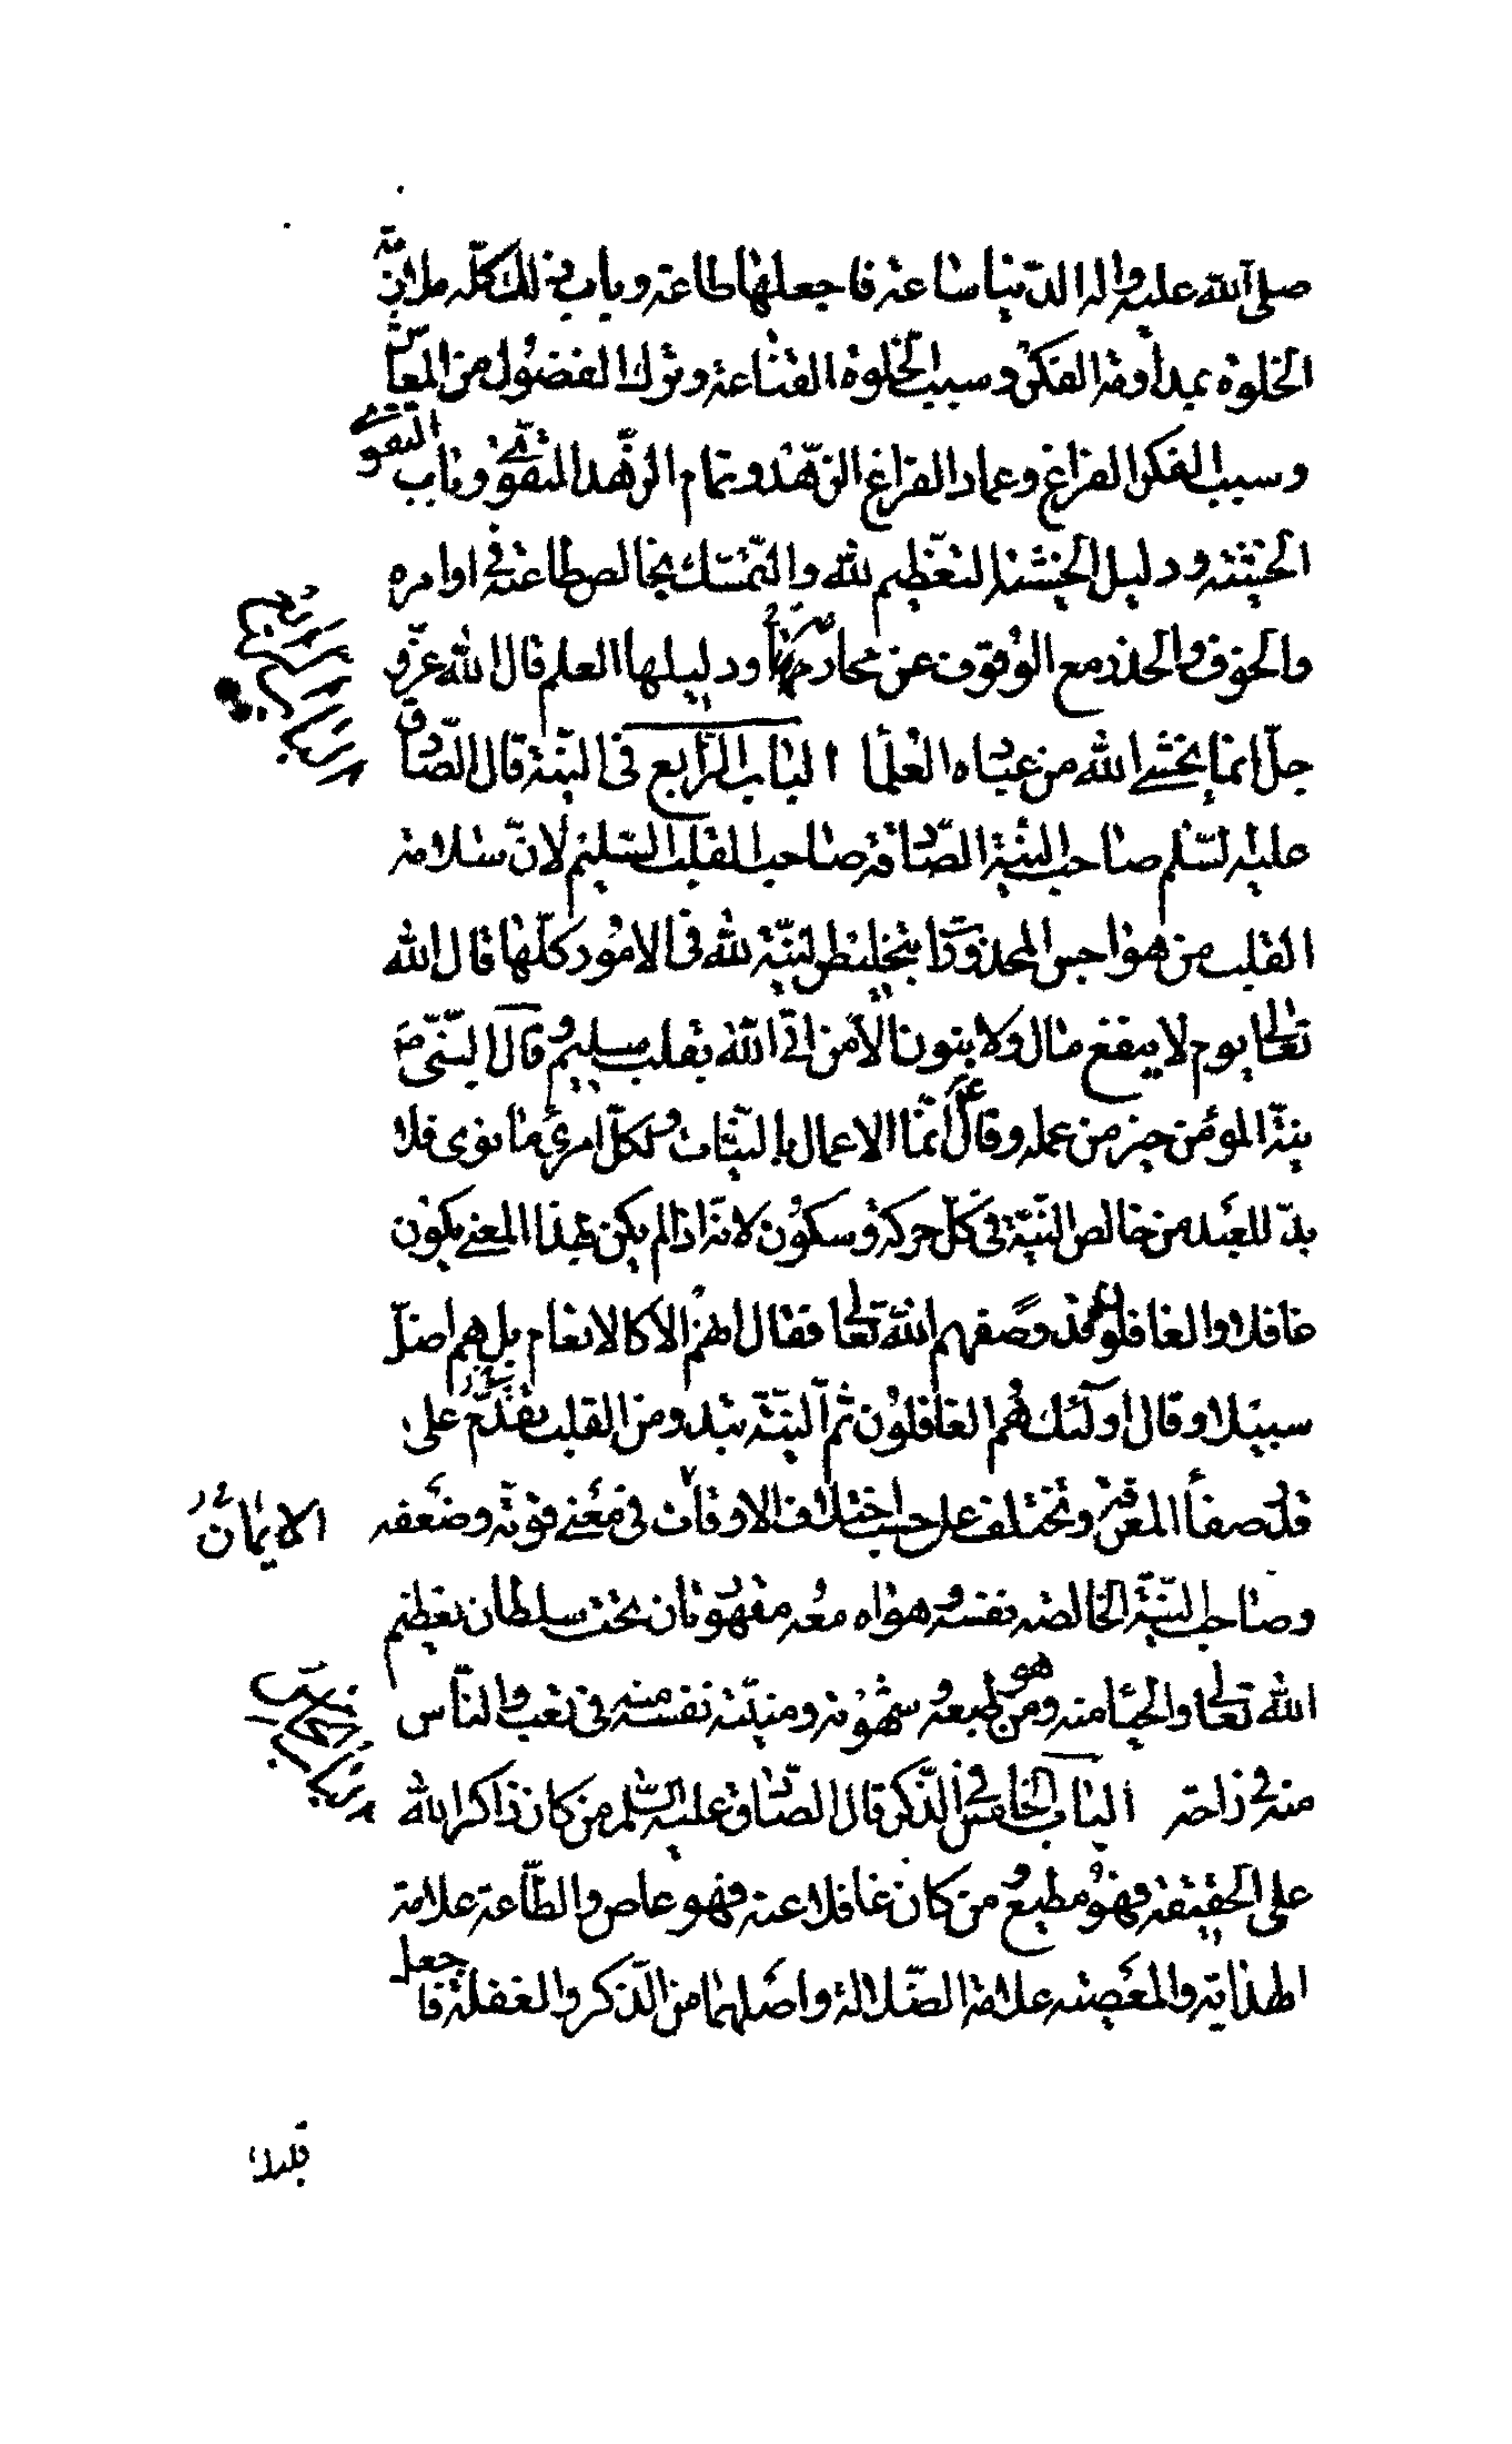 صلى الله عليه واله الدنيا ساعة فاجعلها طاعة وباب ذلك كله ملازمة
الخلوة بمداومة الفكر وسبب الخلوة القناعة وترك الفضول من المعاش
وسبب الفكر الفراغ وعماد الفراغ الزهد وتمام الزهد التقوى وباب التقوى
الخشية ودليل الخشية التعظيم لله والتمسك بخالص طاعته في اوامره
والخوف والحذر مع الوقوف عن محارمه ودليلها العلم قال الله عز و
جل انما يخشى الله من عباده العلما الباب الرابع في النية قال الصادق
عليه السلم صاحب النية الصادقة صاحب القلب السليم لان سلامة
القلب من هواجس المحذورات بتخليص النية لله في الامور كلها قال الله
تعالى يوم لا ينفع مال ولا بنون الا من اتى الله بقلب سليم وقال النبي ص
نية المؤمن خير من عمله وقال ع انما الاعمال بالنيات ولكل امرئ ما نوى فلا
بد للعبد من خالص النية في كل حركة وسكون لانه اذا لم يكن بهذا المعنى يكون
غافلا والغافلون قد وصفهم الله تعالى فقال ان هم الا كالانعام بل هم اضل
سبيلا وقال اولئك هم الغافلون ثم النية تبدو من القلب على
قدر صفاء المعرفة وتختلف على حسب اختلاف الاوقات في معنى قوته وضعفه الايمان
وصاحب النية الخالصة نفسه وهواه معه مقهورتان تحت سلطان تعظيم
الله تعالى والحيا منه وهو من طبعه وشهوته ومنيته نفسه منه في تعب والناس
منه في راحة الباب الخامس في الذكر قال الصادق عليه السلم من كان ذاكرا لله
على الحقيقة فهو مطيع ومن كان غافلا عنه فهو عاص والطاعة علامة
الهداية والمعصية علامة الضلالة واصلهما من الذكر والغفلة فاجعل